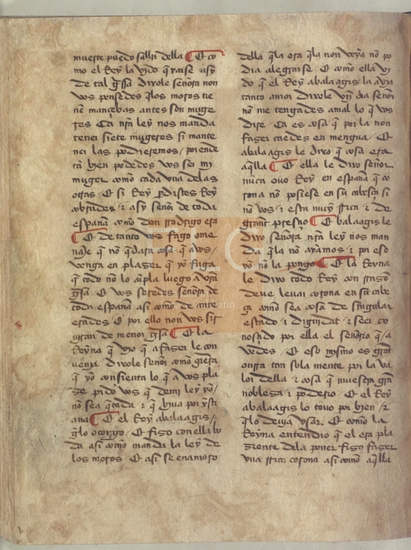 muerte puedo sallir della E co
mo el Rey la vido q̃xarse asy
de tal guisa dixole señora non
vos pensedes q̃ los moros tie
nẽ mancebas antes son muge
res Ca nr̃a ley nos manda
tener siete mugeres si mante
ner las podieremos por ende
tã bien podedes vos ser mi
muger como cada vna de las
otras E si Rey
asy señora de toda
españa como don Rodrigo era
E de tanto vos fago ome
naje q̃ nõ q̃dara cosa q̃ a vos
venga en plaser q̃ yo faga
q̃ todo nõ lo cũpla luego a vr̃a
guisa E vos seredes señora de
toda españa asi como de ante
erades E por ello non vos sir
uirán de menor guisa E la
Reyna q̃ vio q̃ a faser le con
uenia dixole señor como q̃era
q̃ yo consienta lo q̃ a vos pla
se pido vos q̃ de mi ley yo
nõ sea q̃tada e q̃ biua por xp̃sti
ana E el Rey abalaagis
gelo otorgo E fizo con ella bo
da asi como manda la ley de
los moros E asi se enamoro
della q̃ la ora q̃ la non veya nõ po
dia alegrarse E como ella vi
do q̃ el Rey abalaagis la avia
tanto amor dixole vn dia señor
nõ me tengades a mal lo q̃ vos
dire Ca es cosa q̃ por la non
faser caedes en mengua E
abalaagis le dixo q̃ cosa era
aq̃lla E ella le dixo señor
nunca ouo Rey en españa q̃ co
rona nõ posiese en su cabeça si
nõ vos e esta
grant presçio E abalaagis le
dixo señora nr̃a ley nos man
da q̃ la nõ ayamos e por eso
yo nõ la pongo E la Reyna
le dixo todo Rey
deue leuar corona en su cabe
ça como sea cosa de singular
estado e dignidat e ser co
nosçido por ella el señorio q̃ a
vedes E eso mismo es grat
onrra tan sola mente por la va
lor della e cosa q̃ muestra grat
noblesa e poderio E el Rey
abalaagis lo touo por bien e
q̃ lo deuia vsar E como la
Reyna entendio q̃ el era pla
sentero dela poner fizo faser
vna rica corona asi como aq̃lla